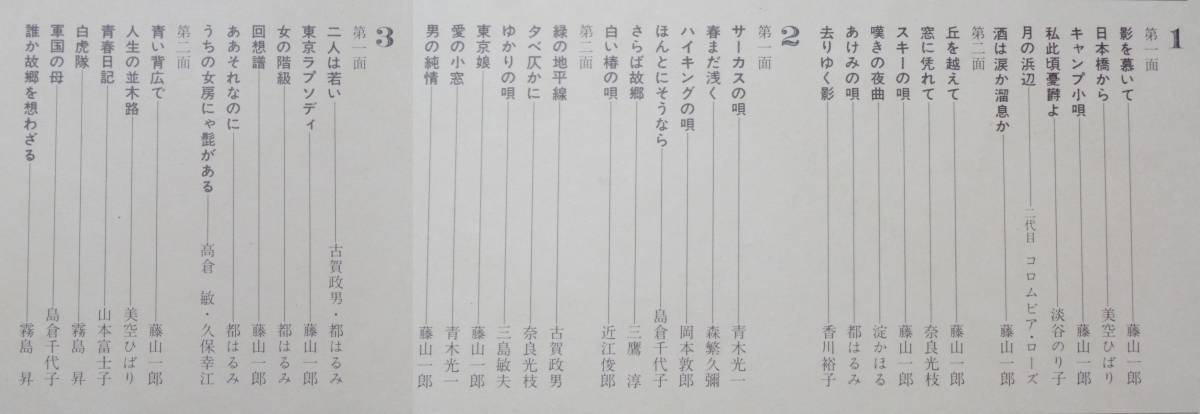 1
第一面
影を慕いて――藤山一郎
日本橋から――美空ひばり
キャンプ小唄――藤山一郎
私此頃憂欝よ――淡谷のり子
月の浜辺――二代目 コロムビア・ローズ
第二面
酒は涙か溜息か――藤山一郎
丘を越えて――藤山一郎
窓に凭れて――奈良光枝
スキーの唄――藤山一郎
嘆きの夜曲――淀かほる
あけみの唄――都はるみ
去りゆく影――香川裕子
2
第一面
サーカスの唄――青木光一
春まだ浅く――森繁久彌
ハイキングの唄――岡本敦郎
ほんとにそうなら――島倉千代子
さらば故郷――三鷹 淳
白い椿の唄――近江俊郎
第二面
緑の地平線――古賀政男
夕べ仄かに――奈良光枝
ゆかりの唄――三島敏夫
東京娘――藤山一郎
愛の小窓――青木光一
男の純情――藤山一郎
3
第一面
二人は若い――古賀政男・都はるみ
東京ラプソディ――藤山一郎
女の階級――都はるみ
回想譜――藤山一郎
ああそれなのに――都はるみ
うちの女房にゃ髭がある――高倉 敏・久保幸江
第二面
青い背広で――藤山一郎
人生の並木路――美空ひばり
青春日記――山本富士子
白虎隊――霧島 昇
軍国の母――島倉千代子
誰か故郷を想わざる――霧島 昇